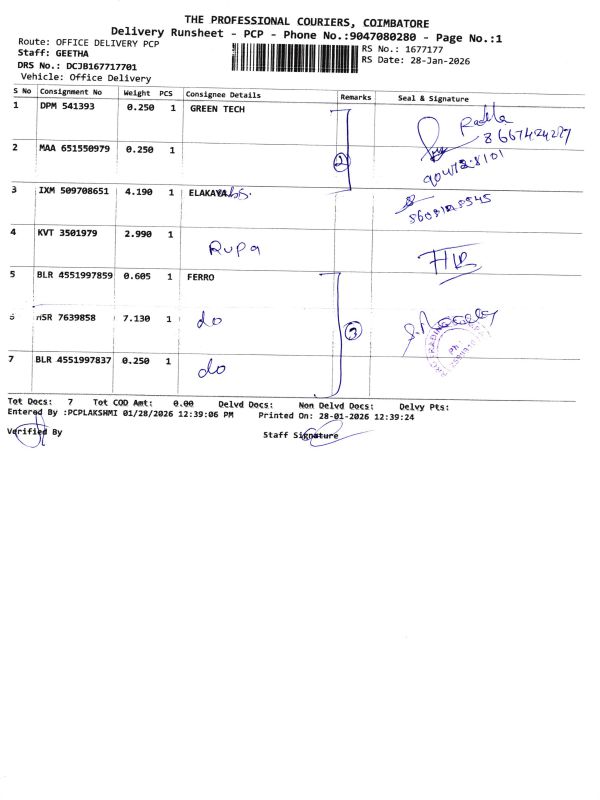 THE PROFESSIONAL COURIERS, COIMBATORE
Delivery Runsheet - PCP - Phone No.:9047080280 - Page No.:1
Route: OFFICE DELIVERY PCP
Staff: GEETHA
DRS No.: DCJB167717701
Vehicle: Office Delivery
RS No.: 1677177
RS Date: 28-Jan-2026
S No Consignment No Weight PCS Consignee Details Remarks Seal & Signature
1 DPM 541393 0.250 1 GREEN TECH
Radha
2 MAA 651550979 0.250 1
2
3 IXM 509708651 4.190 1
4 KVT 3501979 2.990 1
Rupa
5 BLR 4551997859 0.605 1 FERRO
6 HSR 7639858 7.130 1 do
3
7 BLR 4551997837 0.250 1 do
Tot Docs: 7 Tot COD Amt: 0.00 Delvd Docs: Non Delvd Docs: Delvy Pts:
Entered By :PCPLAKSHMI 01/28/2026 12:39:06 PM Printed On: 28-01-2026 12:39:24
Verified By Staff Signature